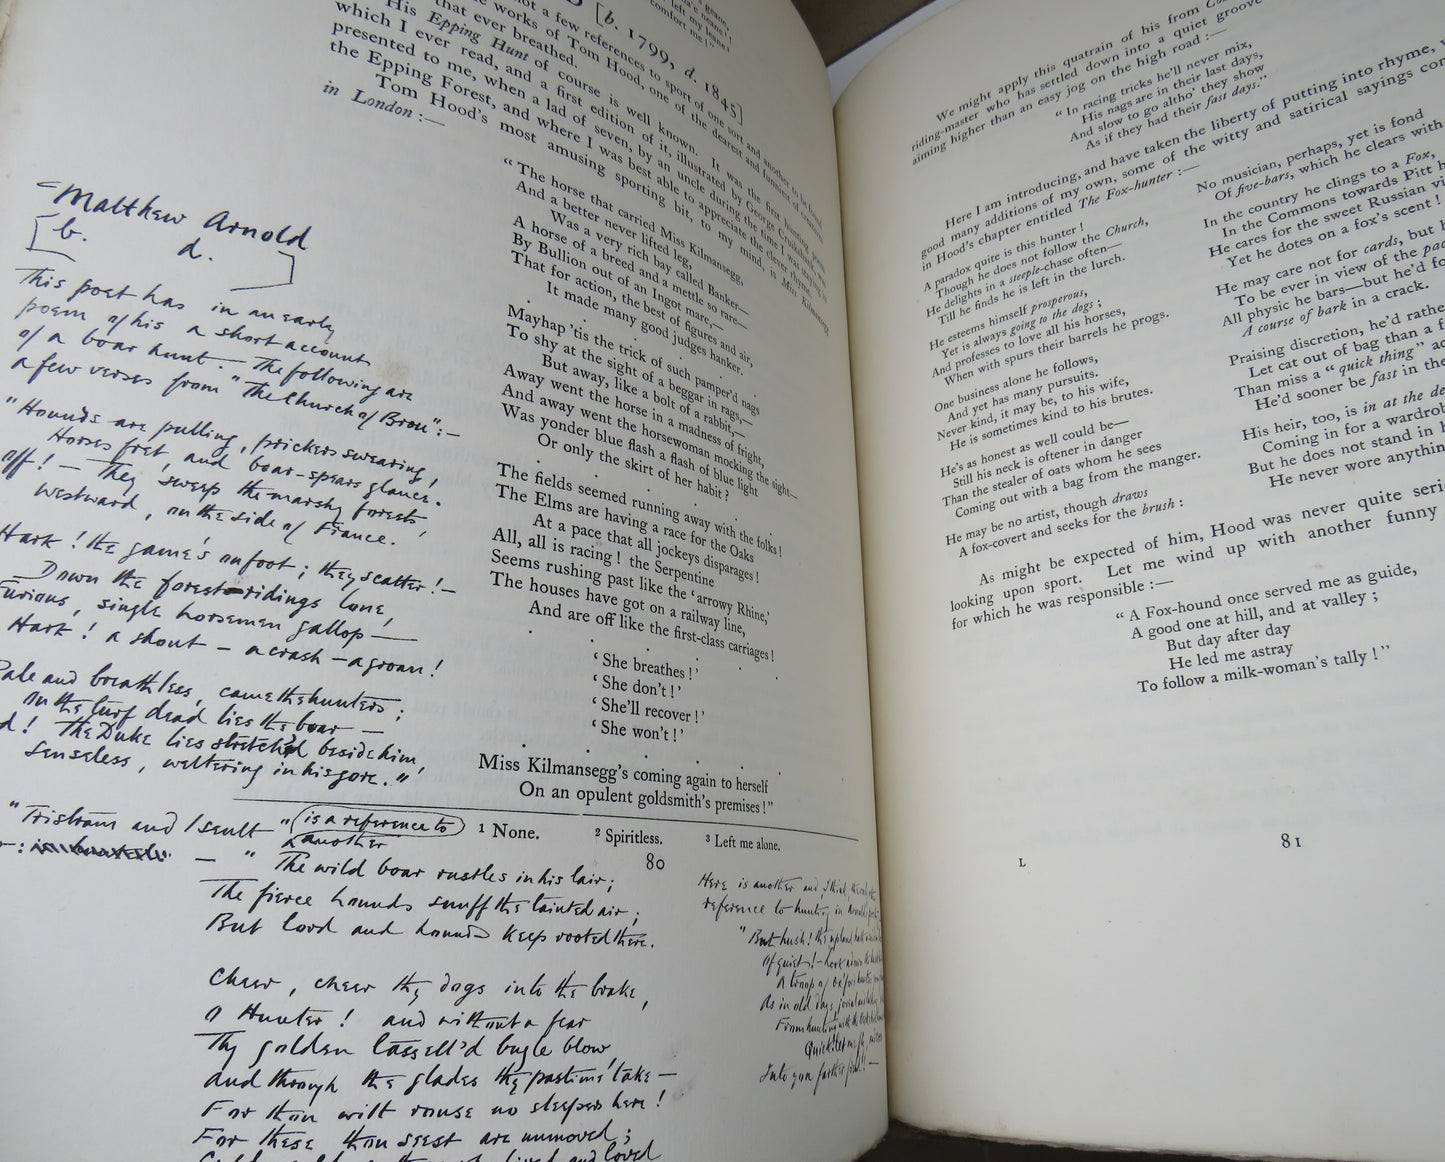 geane,
neane!
left my leane
comfort me!"
[b. 1799, d. 1845]
not a few references to sport of one sort and another to be found
the works of Tom Hood, one of the dearest and funniest of
that ever breathed.
His Epping Hunt of course is well known. It was the first hunting poem
which I ever read, and a first edition of it, illustrated by George Cruikshank, was
presented to me, when a lad of seven, by an uncle during the time I was staying in
the Epping Forest, and where I was best able to appreciate the clever rhyme.
Tom Hood's most amusing sporting bit, to my mind, is Miss Kilmansegg
in London :—
"The horse that carried Miss Kilmansegg,
And a better never lifted leg,
Was a very rich bay called Banker—
A horse of a breed and a mettle so rare—
By Bullion out of an Ingot mare,—
That for action, the best of figures and air,
It made many good judges hanker.
Mayhap 'tis the trick of such pamper'd nags
To shy at the sight of a beggar in rags,—
But away, like a bolt of a rabbit,—
Away went the horse in a madness of fright,
And away went the horsewoman mocking the sight—
Was yonder blue flash a flash of blue light
Or only the skirt of her habit?
. . . . .
The fields seemed running away with the folks!
The Elms are having a race for the Oaks
At a pace that all jockeys disparages!
All, all is racing! the Serpentine
Seems rushing past like the 'arrowy Rhine,'
The houses have got on a railway line,
And are off like the first-class carriages!
. . . . .
'She breathes!'
'She don't!'
'She'll recover!'
'She won't!'
. . . . .
Miss Kilmansegg's coming again to herself
On an opulent goldsmith's premises!"
1 None.   2 Spiritless.   3 Left me alone.
80
Matthew Arnold
[b. d. ]
This poet has in an early
poem of his a short account
of a boar hunt. The following are
a few verses from "The Church of Brou":—
"Hounds are pulling, prickers swearing,
Horses fret and boar-spears glance.
off!— They sweep the marshy forests
Westward, on the side of France.
Hark! the game's on foot; they scatter!—
Down the forest-ridings lone,
Furious, single horsemen gallop—
Hark! a shout— a crash— a groan!
Pale and breathless, came the hunters;
On the turf dead lies the boar—
! The Duke lies stretch'd beside him,
Senseless, weltering in his gore."
"Tristram and Iseult" is a reference to
another
—:
— " The wild boar rustles in his lair;
The fierce hounds snuff the tainted air;
But lord and hounds keep rooted there.
Cheer, cheer thy dogs into the brake,
O Hunter! and without a fear
Thy golden tassell'd bugle blow
and through the glades thy pastime take—
For thou wilt rouse no sleepers here!
For these thou seest are unmoved;
lived and loved
Here is another and, I think, the only
reference to hunting in Arnold's
"But hush! the upland hath
Of quiet!—
A troop of Oxford hunters
As in old days, jovial and
From hunting with the
Quick! let me fly, and
Into yon farther field!—
We might apply this quatrain of his from
riding-master who has settled down into a quiet groove
aiming higher than an easy jog on the high road :—
"In racing tricks he'll never mix,
His nags are in their last days,
And slow to go altho' they show
As if they had their fast days."
Here I am introducing, and have taken the liberty of putting into rhyme,
good many additions of my own, some of the witty and satirical sayings
in Hood's chapter entitled The Fox-hunter :—
A paradox quite is this hunter!
Though he does not follow the Church,
He delights in a steeple-chase often—
Till he finds he is left in the lurch.
He esteems himself prosperous,
Yet is always going to the dogs;
And professes to love all his horses,
When with spurs their barrels he progs.
One business alone he follows,
And yet has many pursuits.
Never kind, it may be, to his wife,
He is sometimes kind to his brutes.
He's as honest as well could be—
Still his neck is oftener in danger
Than the stealer of oats whom he sees
Coming out with a bag from the manger.
He may be no artist, though draws
A fox-covert and seeks for the brush :
No musician, perhaps, yet is fond
Of five-bars, which he clears with
In the country he clings to a Fox,
In the Commons towards Pitt
He cares for the sweet Russian
Yet he dotes on a fox's scent!
He may care not for cards, but
To be ever in view of the
All physic he bars—but he'd
A course of bark in a crack.
Praising discretion, he'd rather
Let cat out of bag than a
Than miss a "quick thing"
He'd sooner be fast in the
His heir, too, is in at the
Coming in for a
But he does not stand in
He never wore
As might be expected of him, Hood was never quite
looking upon sport. Let me wind up with another funny
for which he was responsible :—
"A Fox-hound once served me as guide,
A good one at hill, and at valley;
But day after day
He led me astray
To follow a milk-woman's tally!"
81
L